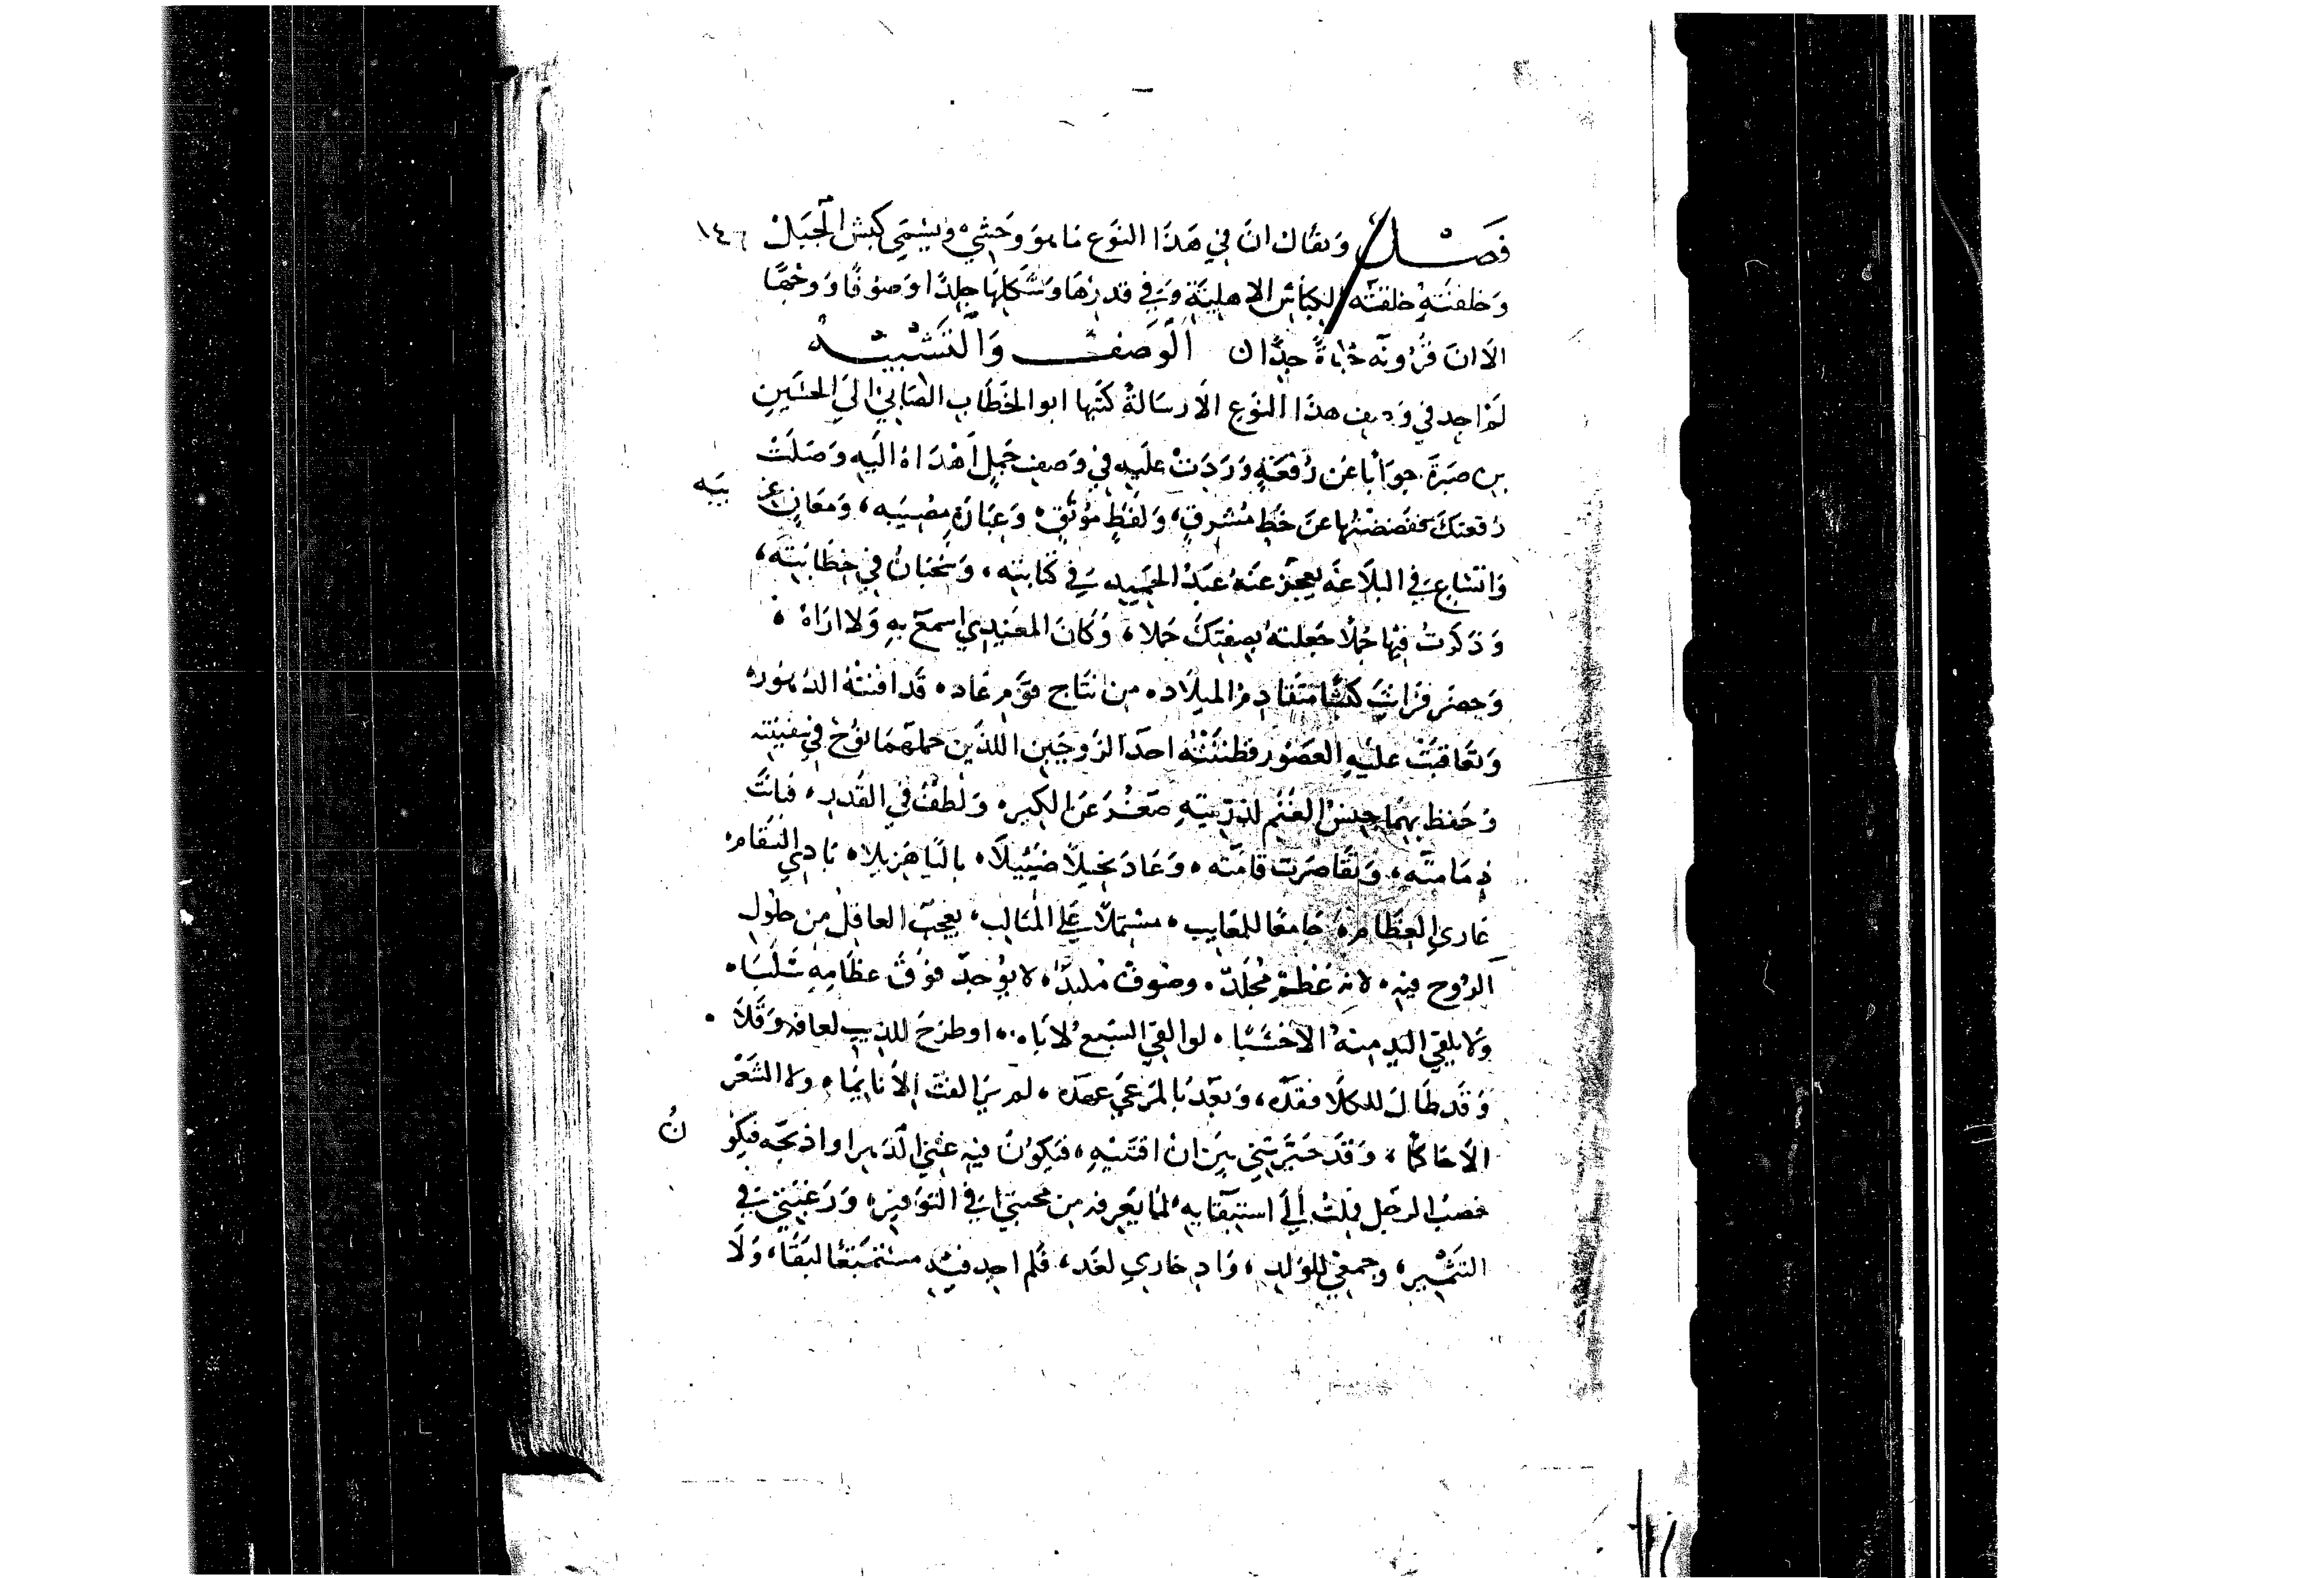 فصل ويقال ان في هذا النوع ما هو وحشي ويسمي كبش الجبل ١٤٦
وخلقته خلقته الكباش الاهلية وفي قدرها وشكلها جلدا وصوفا ووخما
الا ان قرونه جدا الوصف والتشبيه
لم اجد في وصف هذا النوع الا رسالة كتبها ابو الخطاب الصابئ الى الحسين
بن صبرة جوابا عن رقعة وردت عليه في وصف حمل اهداه اليه وصلت
رقعتك ففضضتها عن خط مشرق، ولفظ مونق، وعبارة مصيبه، ومعان غريبه
واتساع في البلاغه يعجز عنه عبد الحميد في كتابته، وسحبان في خطابته،
وذكرت فيها حملا جعلته بصفتك جملا، وكان المعيدي اسمع به ولا اراه،
وحضر فرايت كبشا متقادم الميلاد، من نتاج قوم عاد، قد افنته الدهور،
وتعاقبت عليه العصور فظننته احد الزوجين اللذين حملهما نوح في سفينته
وحفظ بهما جنس الغنم لذريته صغر عن الكبر، ولطف في القدر، فبانت
دمامته، وتقاصرت قامته، وعاد نحيلا ضئيلا، باليا هزيلا، بادي السقام،
عاري العظام، جامعا للمعايب، مشتملا على المثالب، يعجب العاقل من حلول
الروح فيه، لانه عظم مجلد، وصوف ملبد، لا يوجد فوق عظامه سلبا،
ولا يلقي اليد منه الا خشبا، لو القي للسبع لاباه، او طرح للذيب لعافه وقلاه،
وقد طال للكلا فقده، وبعد بالمرعي عهده، لم ير القت الا نايما، ولا الشعر
الا حالما، وقد خيرتني بين ان اقتنيه، فيكون فيه غني الدهر او اذبحه فيكون
خصب الرحل فملت الي استبقايه لما يعرف من محبتي في التوفير، ورغبتي في
التثمير، وجمعي للولد، وادخاري لغد، فلم اجد فيه مستمتعا لبقا، ولا